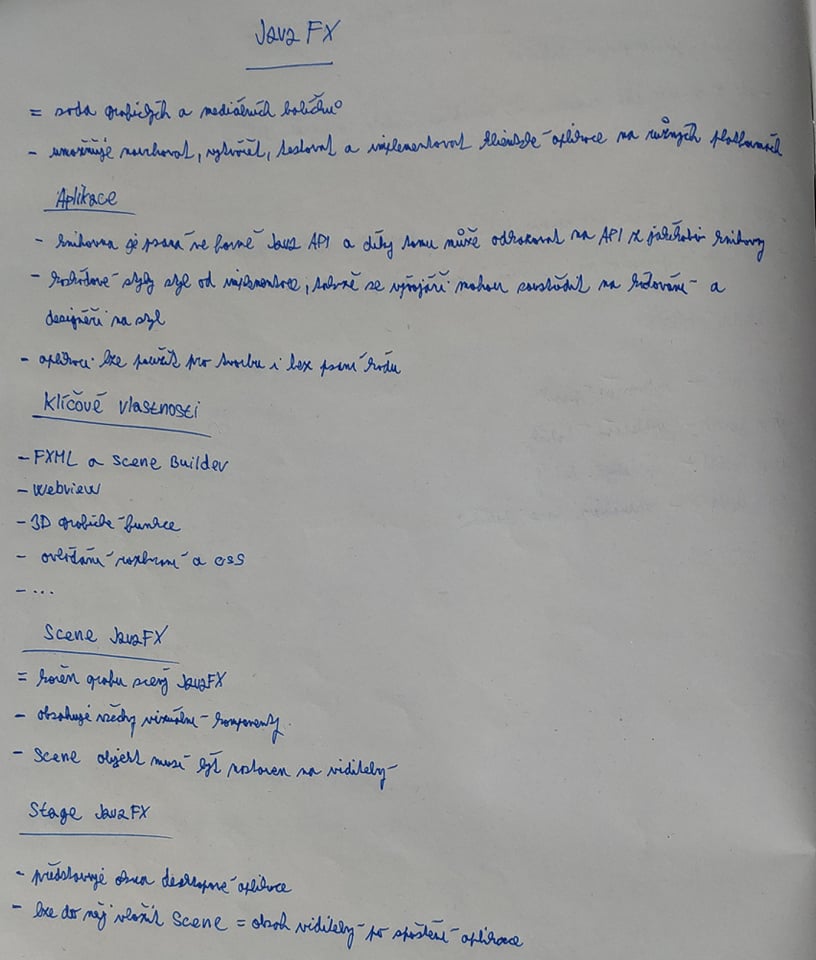 Java FX
= sada grafických a mediálních balíčků
- umožňuje navrhovat, vytvářet, testovat a implementovat klientské aplikace na různých platformách
Aplikace
- knihovna je psaná ve formě Java API a díky tomu může odkazovat na API z jakékoliv knihovy
- kaskádové styly styl od implementace, takže se vývojáři mohou soustředit na kódování a
designéři na styl
- aplikaci lze použít pro tvorbu i bez psaní kódu
Klíčové vlastnosti
- FXML a Scene Builder
- Webview
- 3D grafické funkce
- ovládání rozhraní a CSS
- ...
Scene JavaFX
= kořen grafu scény JavaFX
- obsahuje všechy vizuální komponenty
- Scene objekt musí být nastaven na viditelný
Stage JavaFX
- představuje okna desktopové aplikace
- lze do něj vložit Scene = obsah viditelný po spuštění aplikace